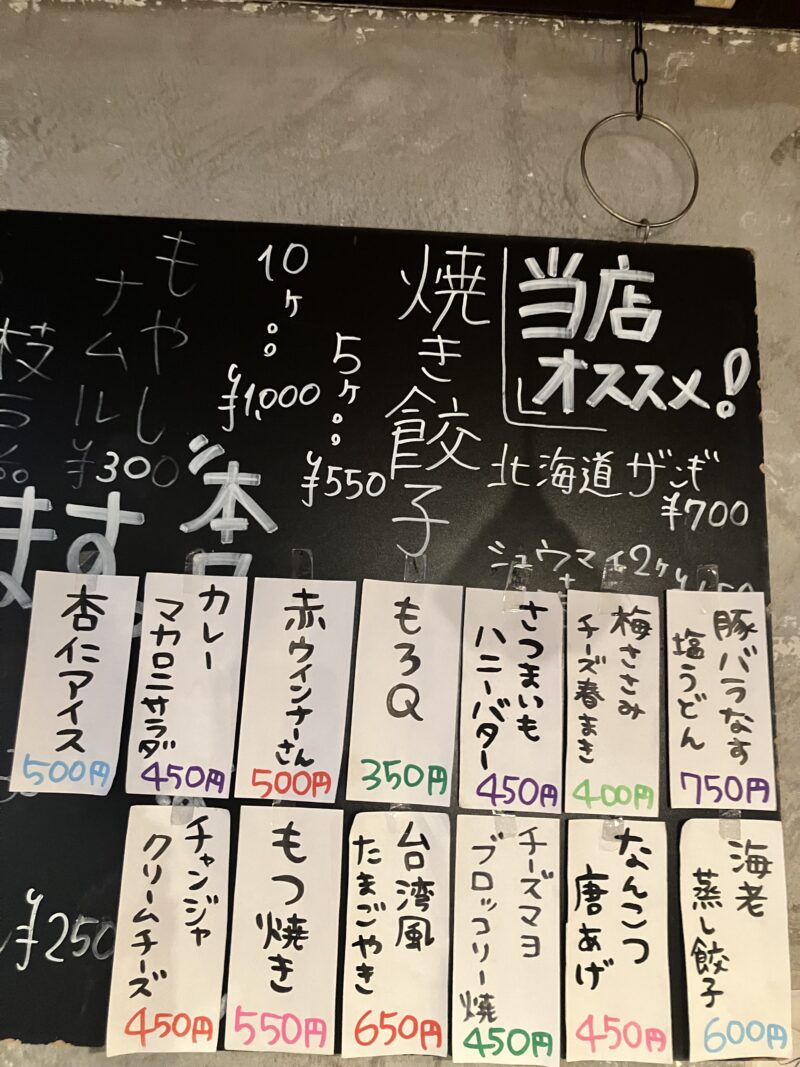 当店
オススメ!
北海道ザンギ
¥700
シュウマイ2ケ
焼き餃子
5ケ。。
¥550
10ケ。。
¥1,000
もやし
ナムル
¥300
枝
本
ます
¥250
豚バラなす
塩うどん
750円
梅ささみ
チーズ春まき
400円
さつまいも
ハニーバター
450円
もろQ
350円
赤ウインナーさん
500円
カレー
マカロニサラダ
450円
杏仁アイス
500円
海老
蒸し餃子
600円
なんこつ
唐あげ
450円
チーズマヨ
ブロッコリー焼
450円
台湾風
たまごやき
650円
もつ焼き
550円
チャンジャ
クリームチーズ
450円